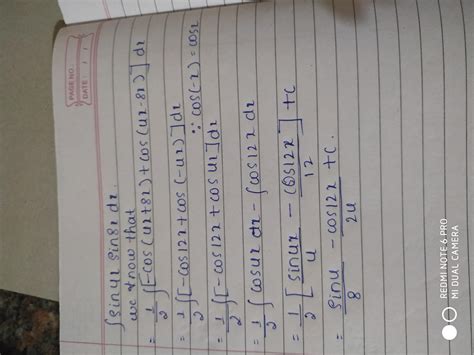 PAGE NO.
DATE: / /
∫ sin4x sin8x dx.
we know that
= 1/2 ∫ [-cos (4x+8x) + cos (4x-8x)] dx
= 1/2 ∫ [-cos12x + cos (-4x)] dx
∵ cos(-x) = cosx
= 1/2 ∫ [-cos12x + cos 4x] dx
= 1/2 ∫ cos4x dx - ∫ cos12x dx
= 1/2 [ sin4x/4 - cos12x/12 ] + c
= sin4/8 - cos12x/24 + c.
REDMI NOTE 6 PRO
MI DUAL CAMERA